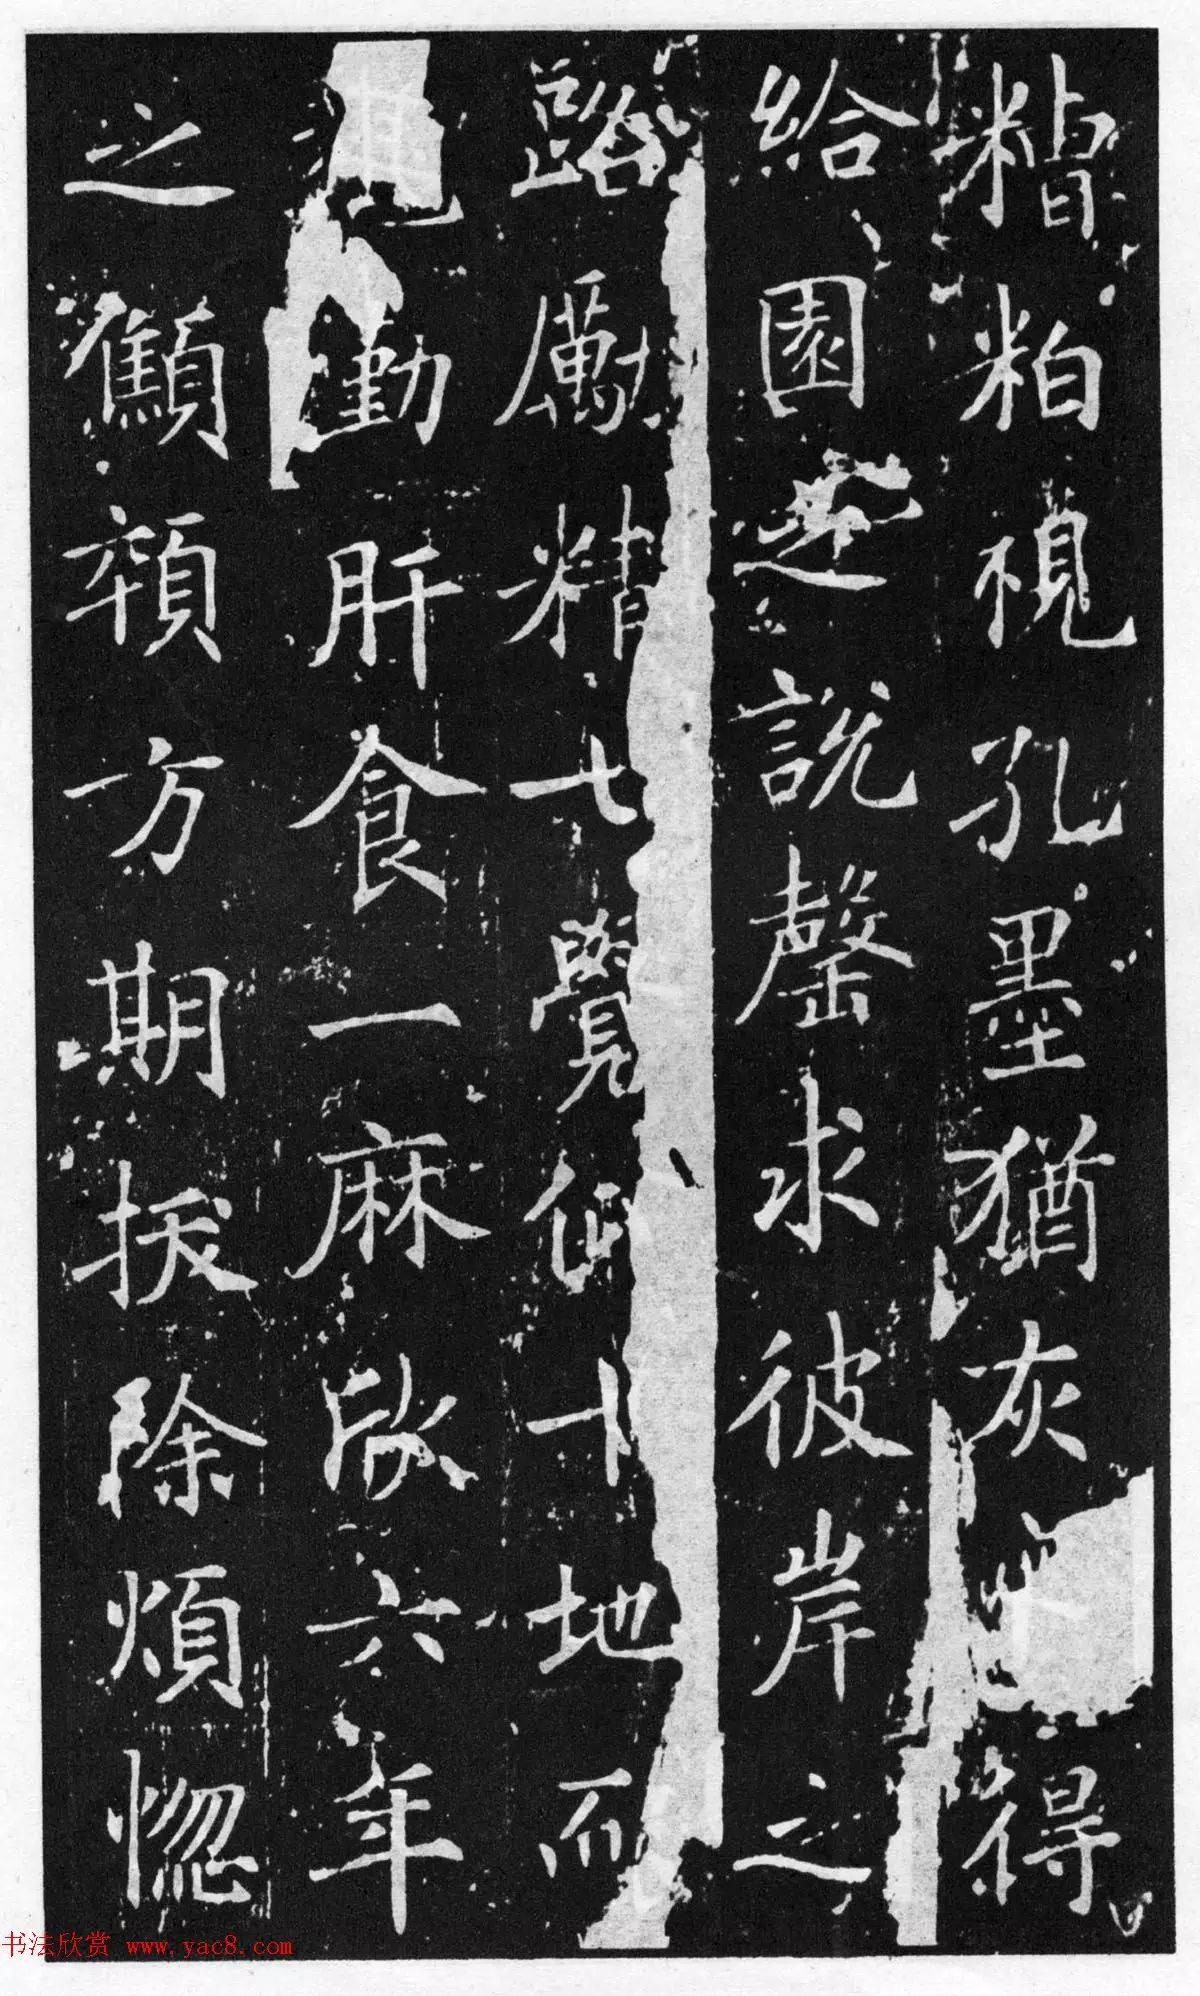 糟粕視孔墨猶灰得
給園之說罄求彼岸之
路勵精七覺仰十地而
勤肝食一麻欣六年
之顦顇方期拔除煩惚
书法欣赏 www.yac8.com